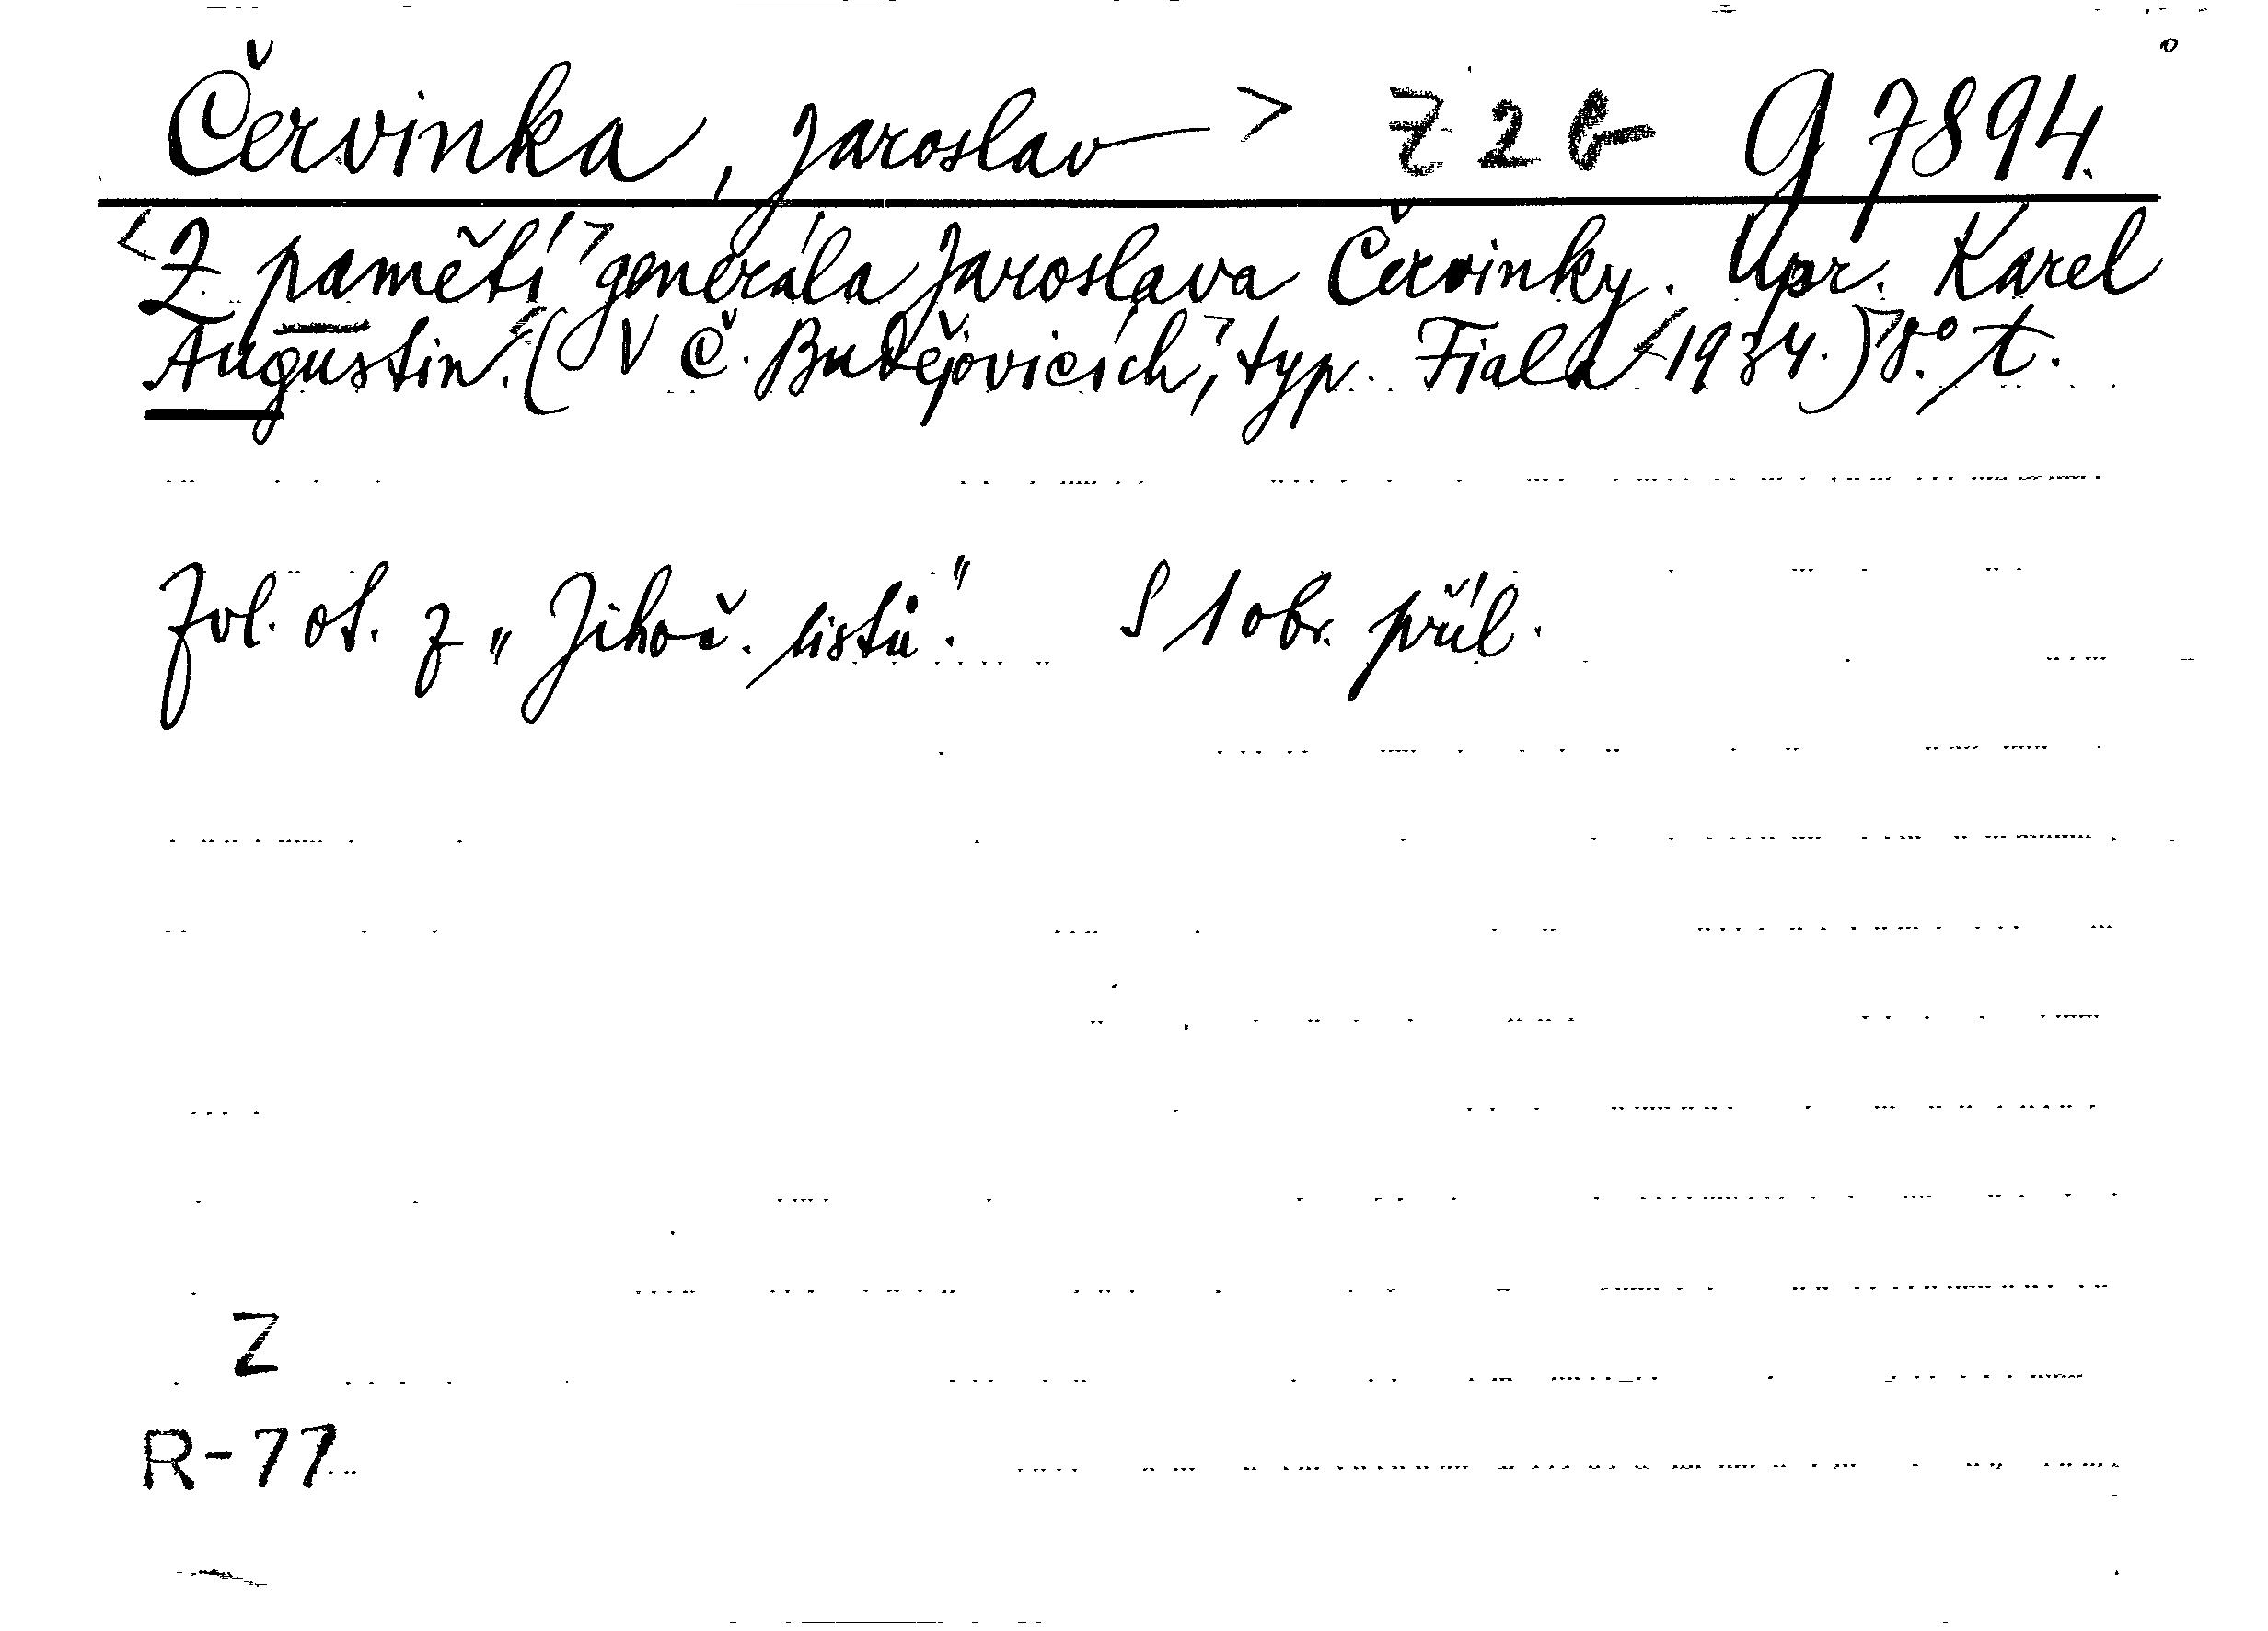 Červinka, Jaroslav > Z 2 b G 7894.
<Z pamětí> generála Jaroslava Červinky. Upr. Karel
Augustin. <(V Č. Budějovicích>, typ. Fiala <1934.)> 8.° t.
Zvl. ot. z „Jihoč. listů." S 1 obr. příl.
Z
R-77